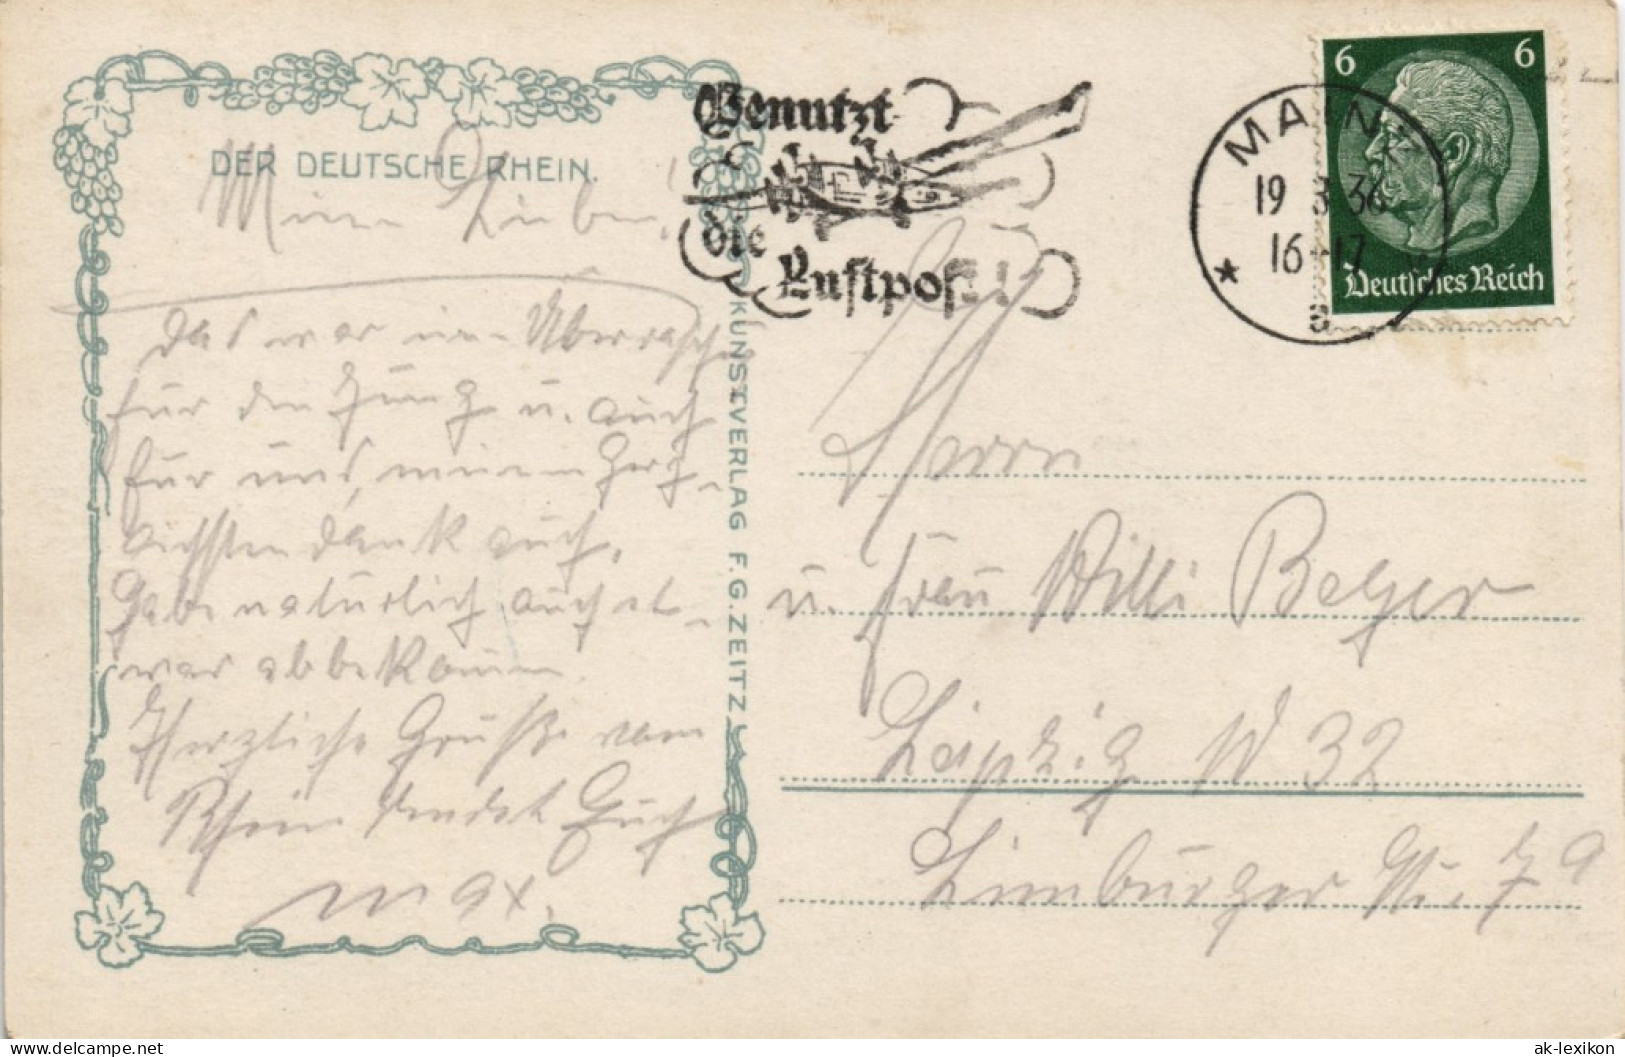 DER DEUTSCHE RHEIN.
Meine Lieben!
Das war eine Überrasch
für den Jung u. auch
für uns, meinen herz-
lichsten Dank auch.
Habe natürlich auch et-
was abbekommen.
Herzliche Grüße vom
Rhein sendet Euch
Max.
KUNSTVERLAG F.G. ZEITZ
Benutzt
die
Luftpost!
MAINZ
19 3 36
16-17
a
6 6
Deutsches Reich
Herrn
u. Frau Willi Belger
Leipzig W 32
Limburger Str. 7a
delcampe.net
ak-lexikon